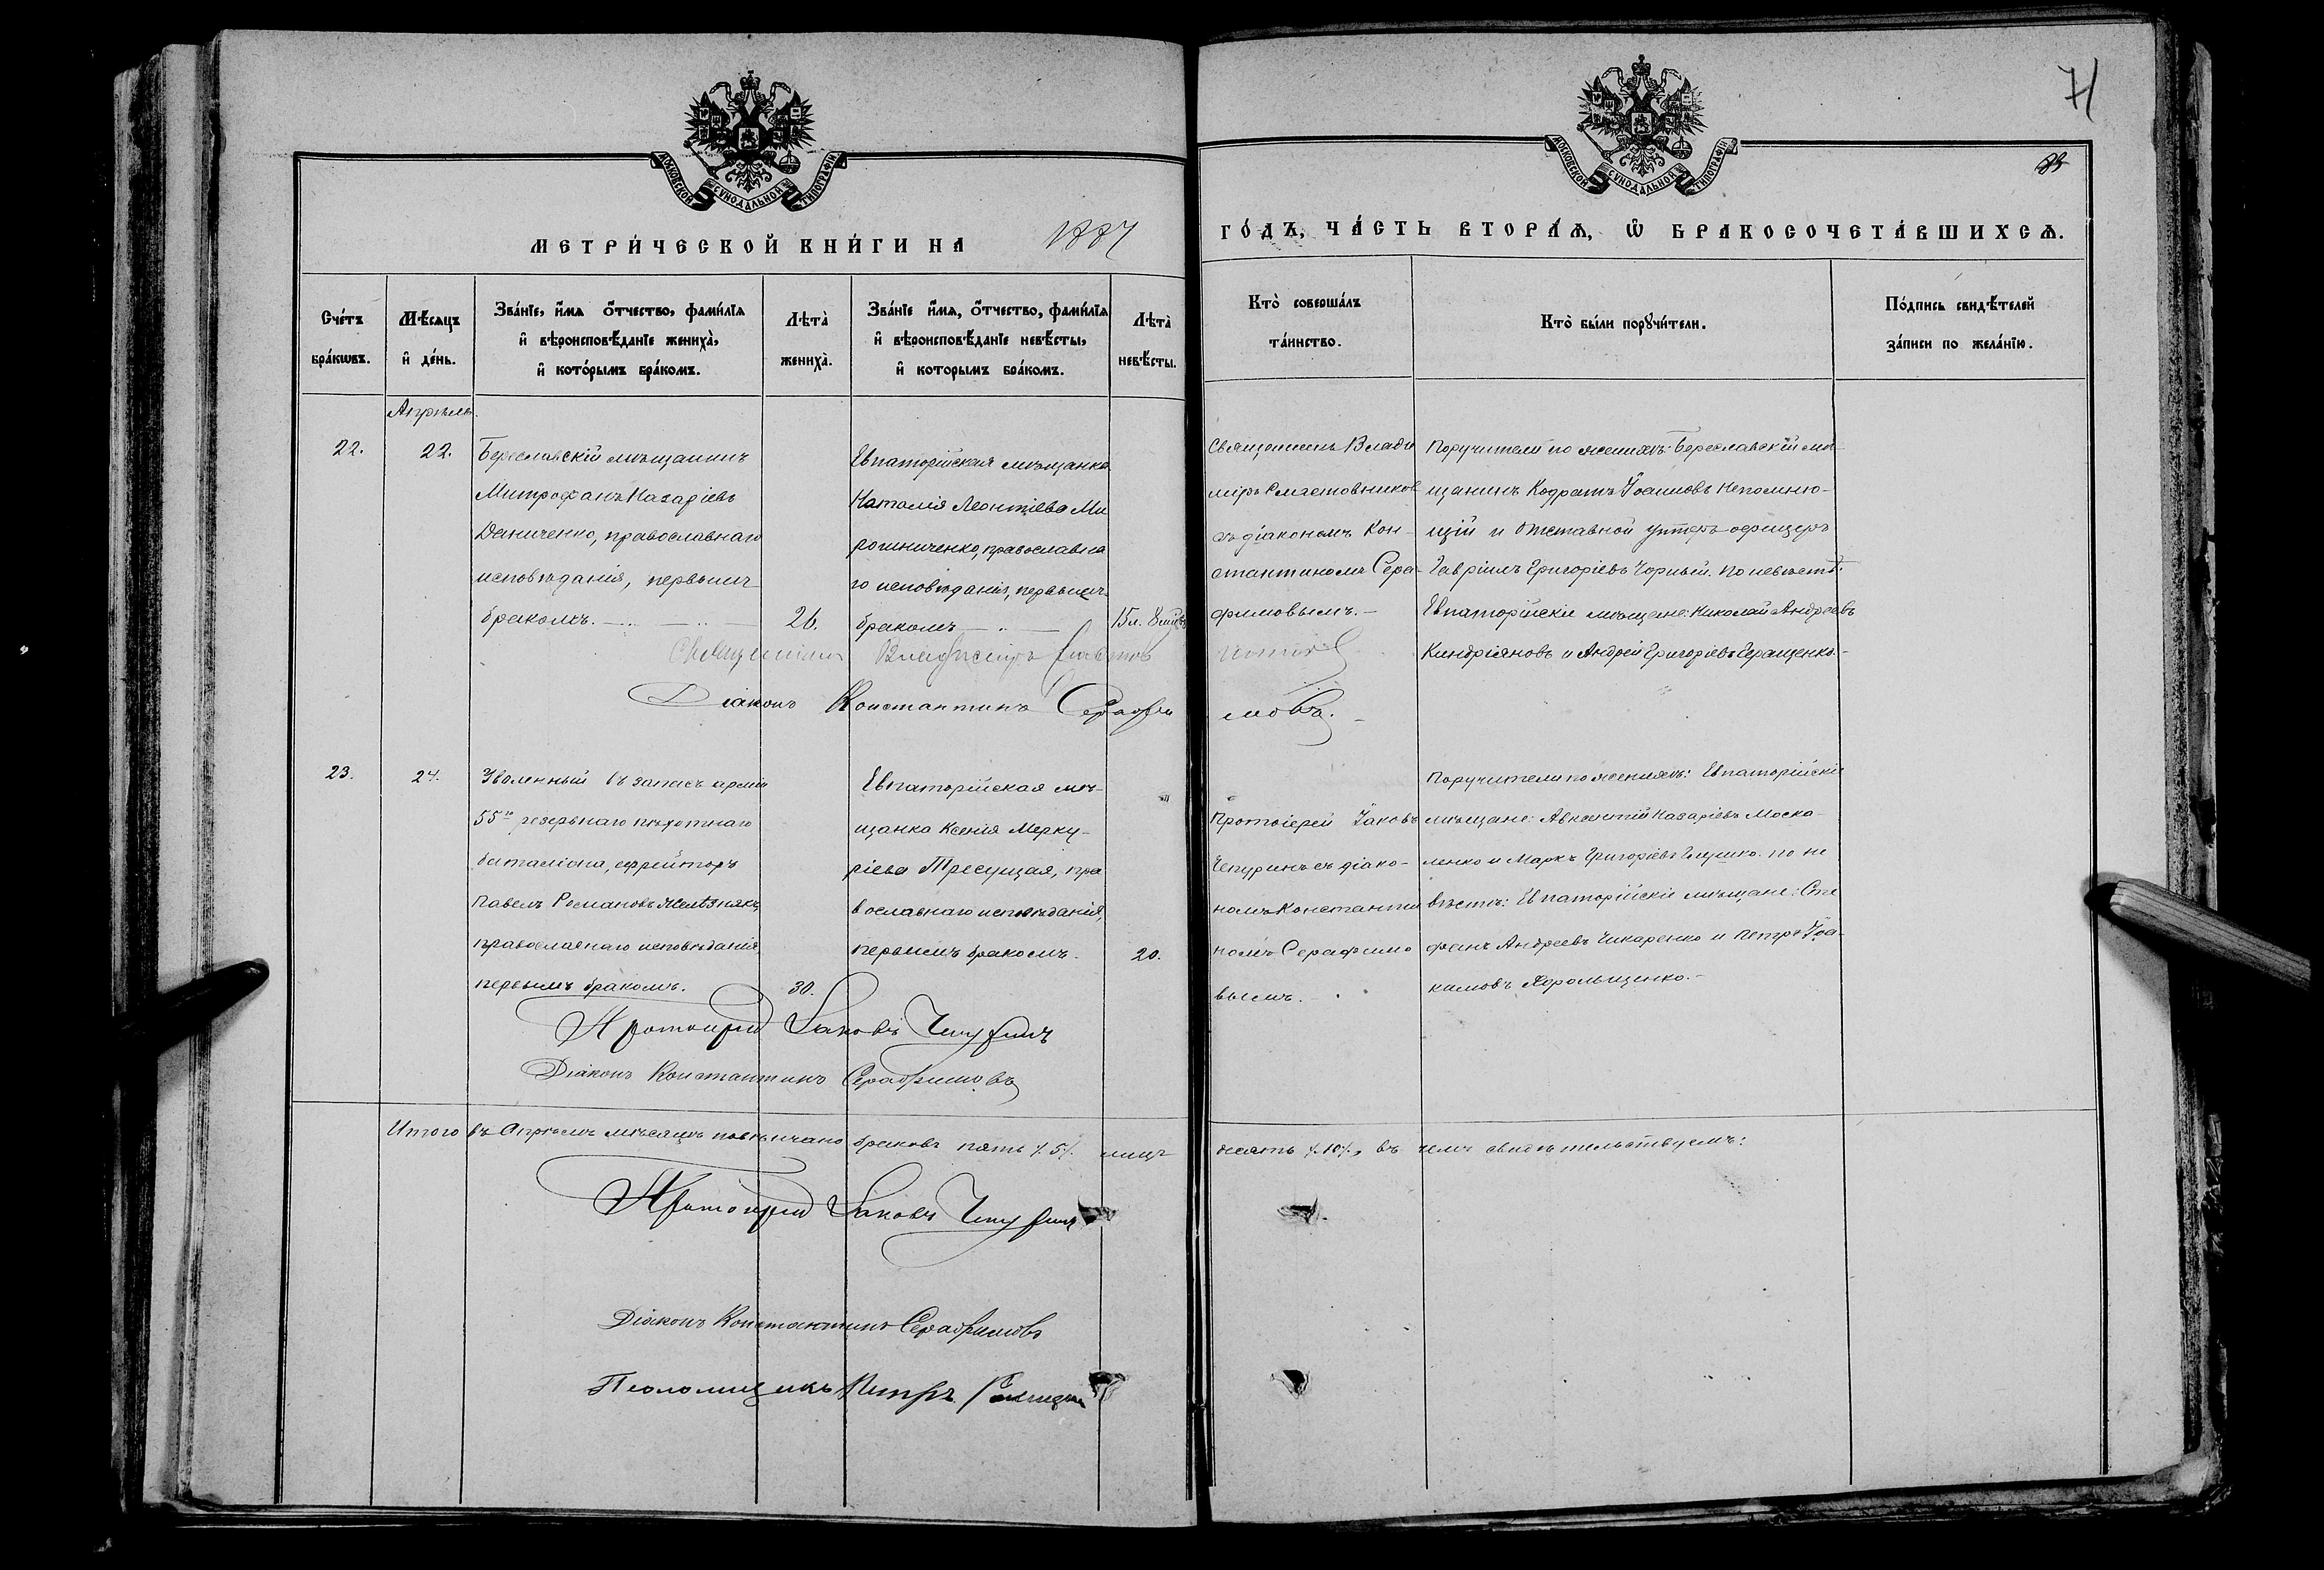 71
83
МОСКОВСКОЙ СѴНОДАЛЬНОЙ ТИПОГРАФІИ
МОСКОВСКОЙ СѴНОДАЛЬНОЙ ТИПОГРАФІИ
МЕТРИ́ЧЕСКОЙ КНИ́ГИ НА 1887
ГО́ДЪ, ЧА́СТЬ ВТОРА́Ѧ, Ѡ БРАКОСОЧЕТА́ВШИХСѦ.
Сче́тъ бра́кѡвъ.
Мѣ́сѧцъ и҆ де́нь.
Зва́нїе, и҆́мѧ ѻ҆́тчество, фами́лїѧ и҆ вѣроисповѣ́данїе жениха̀, и҆ кото́рымъ бра́комъ.
Лѣта̀ жениха̀.
Зва́нїе и҆́мѧ, ѻ҆́тчество, фами́лїѧ и҆ вѣроисповѣ́данїе невѣ́сты, и҆ которымъ бра́комъ.
Лѣта̀ невѣ́сты.
Кто̀ соверша́лъ та́инство.
Кто̀ бы́ли порꙋчи́тели.
По́дпись свидѣ́телей за́писи по жела́нїю.
Апрѣль.
22.
22.
Береславскій мѣщанинъ
Митрофанъ Назаріевъ
Даниченко, православнаго
исповѣданія, первымъ
бракомъ.
26.
Евпаторійская мѣщанка
Наталія Леонтіева Ми
рошниченко, православна
го исповѣданія, первымъ
бракомъ
15 л. 8 мѣс
Священникъ Влади
міръ
съ діакономъ Кон-
стантиномъ Сера-
фимовымъ.-
Поручители по женихѣ: Береславскій мѣ-
щанинъ Кодратъ Іоанновъ Непомню-
щій и отставной унтеръ-офицеръ
Гавріилъ Григоріевъ Чорный. По невѣстѣ:
Евпаторійскіе мѣщане: Николай Андреевъ
Киндріяновъ и Андрей Григоріевъ Геращенко.-
Священникъ Владиміръ
Діаконъ Константинъ Серафи мовъ.
23.
24.
Уволенный въ запасъ арміи
55го резервнаго пѣхотнаго
баталіона, ефрейторъ
Павелъ Романовъ Желѣзнякъ,
православнаго исповѣданія,
первымъ бракомъ.
30.
Евпаторійская мѣ-
щанка Ксенія Мерку-
ріева Тресущая, пра
вославнаго исповѣданія,
первымъ бракомъ.
20.
Протоіерей Іаковъ
Чепуринъ съ діако-
номъ Константи
номъ Серафимо
вымъ.
Поручители по женихѣ: Евпаторійскіе
мѣщане: Авксентій Назаріевъ Моска-
ленко и Маркъ Григоріевъ Глушко. по не
вѣстѣ: Евпаторійскіе мѣщане: Сте
фанъ Андреевъ Чикаренко и Петръ Іоа-
кимовъ Хорольщенко.-
Протоіерей Іаковъ Чепуринъ
Діаконъ Константинъ Серафимовъ
Итого въ Апрѣлѣ мѣсяцѣ повѣнчано браковъ пять /.5/. лицъ десять /.10/., въ чемъ свидѣтельствуемъ:
Протоіерей Іаковъ Чепуринъ
Діаконъ Константинъ Серафимовъ
Псаломщикъ Петръ